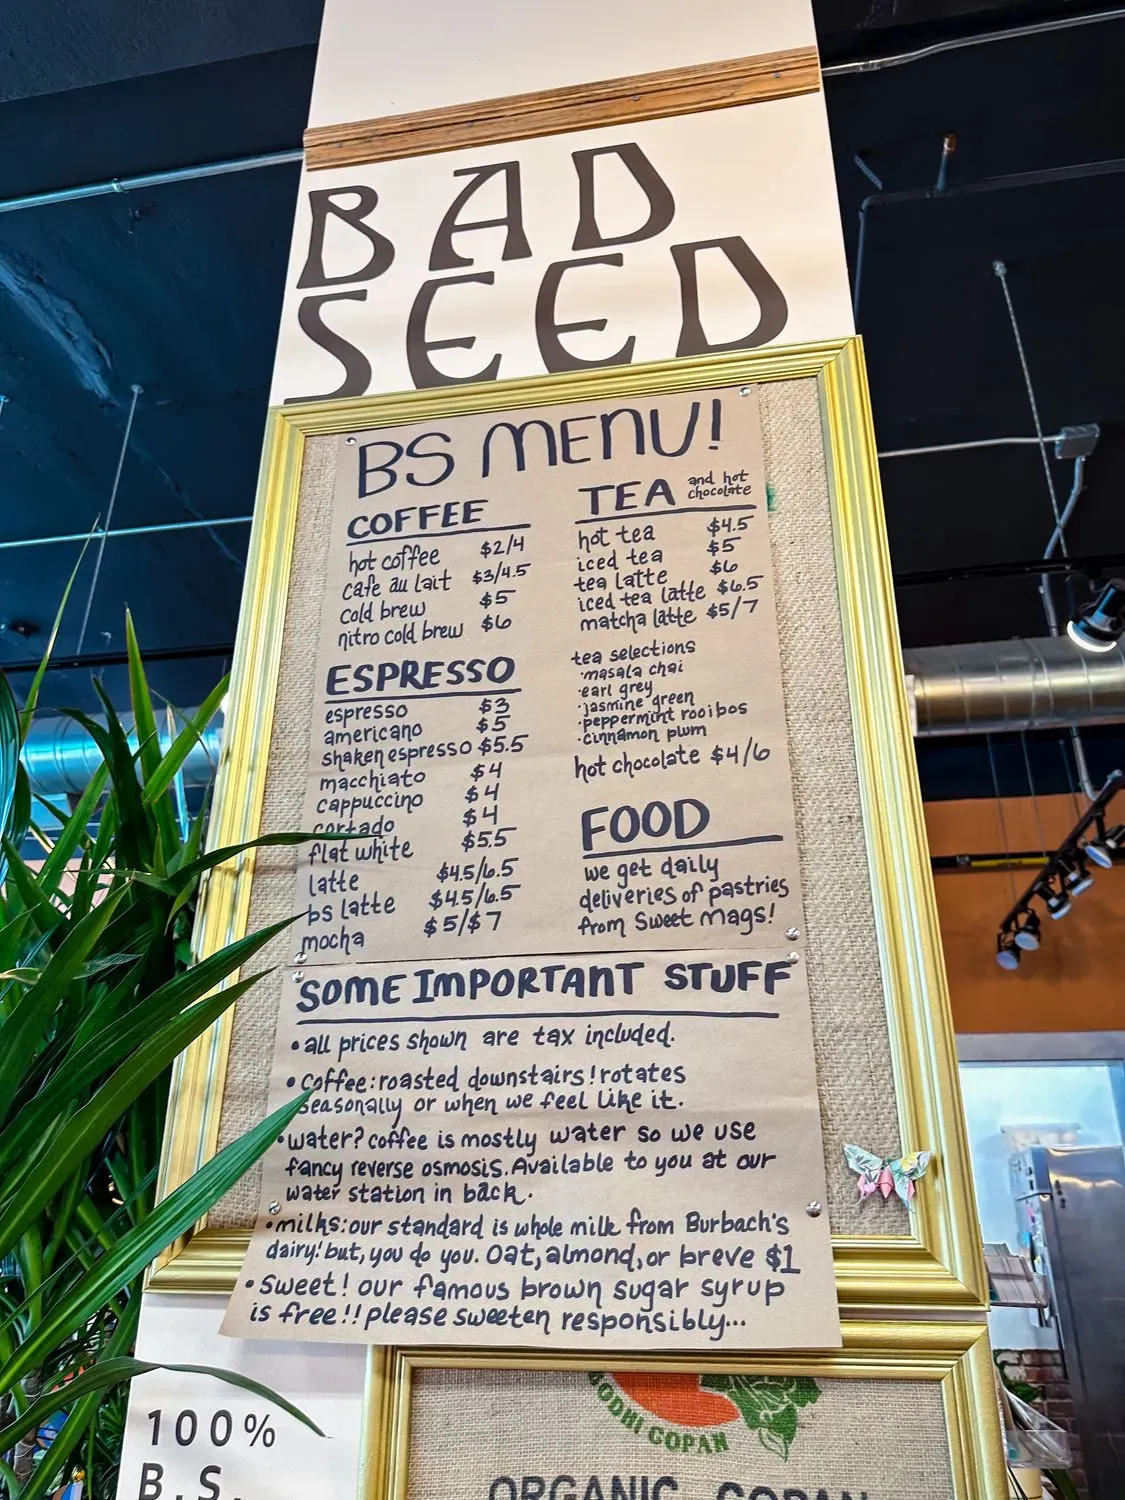 BAD
SEED
BS MENU!
COFFEE
hot coffee $2/4
cafe au lait $3/4.5
cold brew $5
nitro cold brew $6
ESPRESSO
espresso $3
americano $5
shaken espresso $5.5
macchiato $4
cappuccino $4
cortado $4
flat white $5.5
latte $4.5/6.5
bs latte $4.5/6.5
mocha $5/$7
TEA and hot
chocolate
hot tea $4.5
iced tea $5
tea latte $6
iced tea latte $6.5
matcha latte $5/7
tea selections
·masala chai
·earl grey
·jasmine green
·peppermint rooibos
·cinnamon plum
hot chocolate $4/6
FOOD
we get daily
deliveries of pastries
from Sweet Mags!
SOME IMPORTANT STUFF
•all prices shown are tax included.
•Coffee: roasted downstairs! rotates
seasonally or when we feel like it.
•water? coffee is mostly water so we use
fancy reverse osmosis. Available to you at our
water station in back.
•milks: our standard is whole milk from Burbach's
dairy! but, you do you. Oat, almond, or breve $1
•Sweet! our famous brown sugar syrup
is free!! please sweeten responsibly...
100%
B.S.
COPAN
ORGANIC COPAN